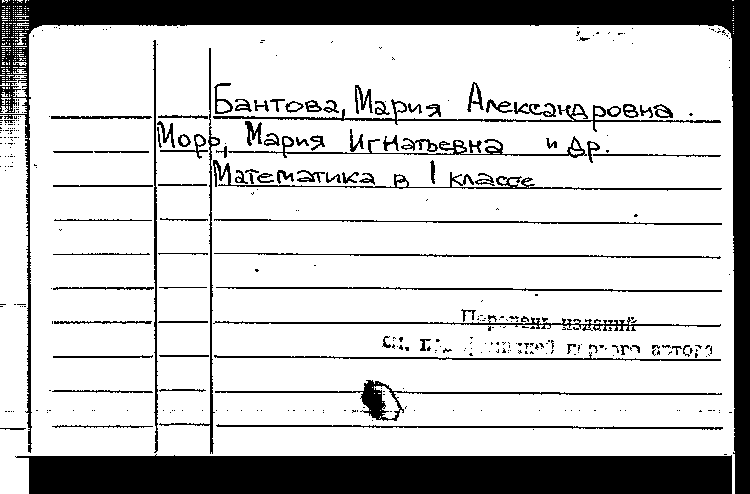 Бантова, Мария Александровна.
Моро, Мария Игнатьевна и др.
Математика в I классе
Перечень изданий
см. под фамилией первого автора